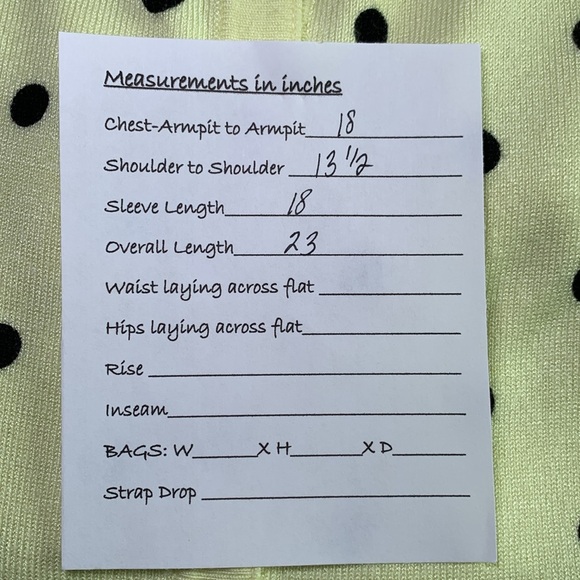 Measurements in inches
Chest-Armpit to Armpit 18
Shoulder to Shoulder 13 1/2
Sleeve Length 18
Overall Length 23
Waist laying across flat
Hips laying across flat
Rise
Inseam
BAGS: W______X H______X D______
Strap Drop